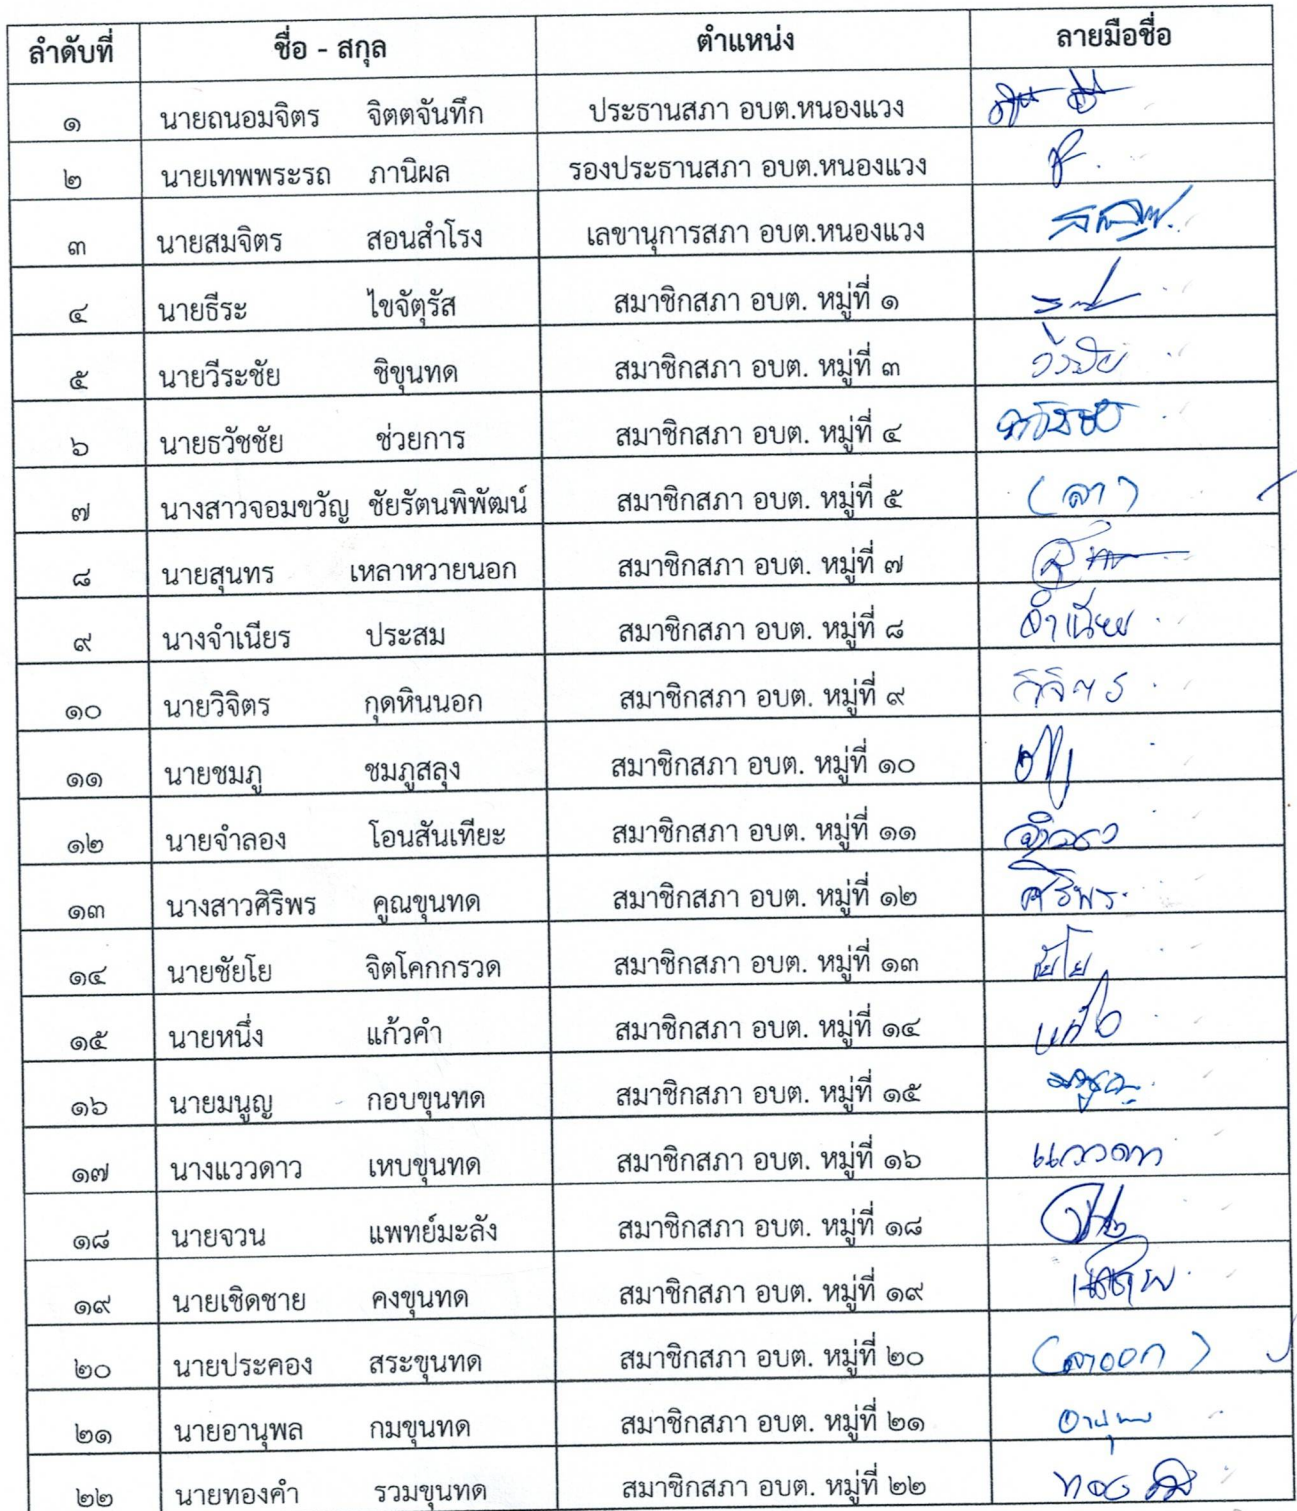 ลำดับที่ ชื่อ - สกุล ตำแหน่ง ลายมือชื่อ
๑ นายถนอมจิตร จิตตจันทึก ประธานสภา อบต.หนองแวง
๒ นายเทพพระรถ ภานิผล รองประธานสภา อบต.หนองแวง
๓ นายสมจิตร สอนสำโรง เลขานุการสภา อบต.หนองแวง
๔ นายธีระ ไขจัตุรัส สมาชิกสภา อบต. หมู่ที่ ๑
๕ นายวีระชัย ชิขุนทด สมาชิกสภา อบต. หมู่ที่ ๓ วีรชัย
๖ นายธวัชชัย ช่วยการ สมาชิกสภา อบต. หมู่ที่ ๔
๗ นางสาวจอมขวัญ ชัยรัตนพิพัฒน์ สมาชิกสภา อบต. หมู่ที่ ๕ (ลา)
๘ นายสุนทร เหลาหวายนอก สมาชิกสภา อบต. หมู่ที่ ๗
๙ นางจำเนียร ประสม สมาชิกสภา อบต. หมู่ที่ ๘ จำเนียร
๑๐ นายวิจิตร กุดหินนอก สมาชิกสภา อบต. หมู่ที่ ๙ วิจิตร
๑๑ นายชมภู ชมภูสลุง สมาชิกสภา อบต. หมู่ที่ ๑๐
๑๒ นายจำลอง โอนสันเทียะ สมาชิกสภา อบต. หมู่ที่ ๑๑ จำลอง
๑๓ นางสาวศิริพร คูณขุนทด สมาชิกสภา อบต. หมู่ที่ ๑๒ ศิริพร
๑๔ นายชัยโย จิตโคกกรวด สมาชิกสภา อบต. หมู่ที่ ๑๓ ชัยโย
๑๕ นายหนึ่ง แก้วคำ สมาชิกสภา อบต. หมู่ที่ ๑๔
๑๖ นายมนูญ กอบขุนทด สมาชิกสภา อบต. หมู่ที่ ๑๕
๑๗ นางแววดาว เหบขุนทด สมาชิกสภา อบต. หมู่ที่ ๑๖ แววดาว
๑๘ นายจวน แพทย์มะลัง สมาชิกสภา อบต. หมู่ที่ ๑๘
๑๙ นายเชิดชาย คงขุนทด สมาชิกสภา อบต. หมู่ที่ ๑๙
๒๐ นายประคอง สระขุนทด สมาชิกสภา อบต. หมู่ที่ ๒๐ (ลาออก)
๒๑ นายอานุพล กมขุนทด สมาชิกสภา อบต. หมู่ที่ ๒๑
๒๒ นายทองคำ รวมขุนทด สมาชิกสภา อบต. หมู่ที่ ๒๒